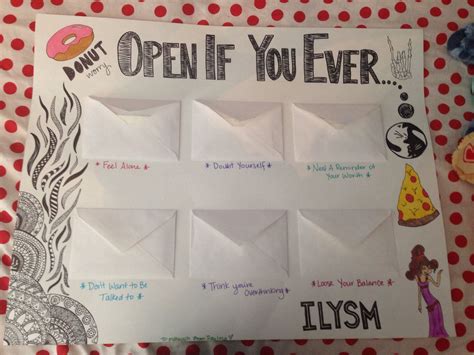 DONUT
worry
OPEN IF YOU EVER...
* Feel Alone *
* Doubt Yourself *
* Need A Reminder of
Your Worth *
* Don't Want to Be
Talked to *
* Think you're
Overthinking *
* Lose Your Balance *
ILYSM